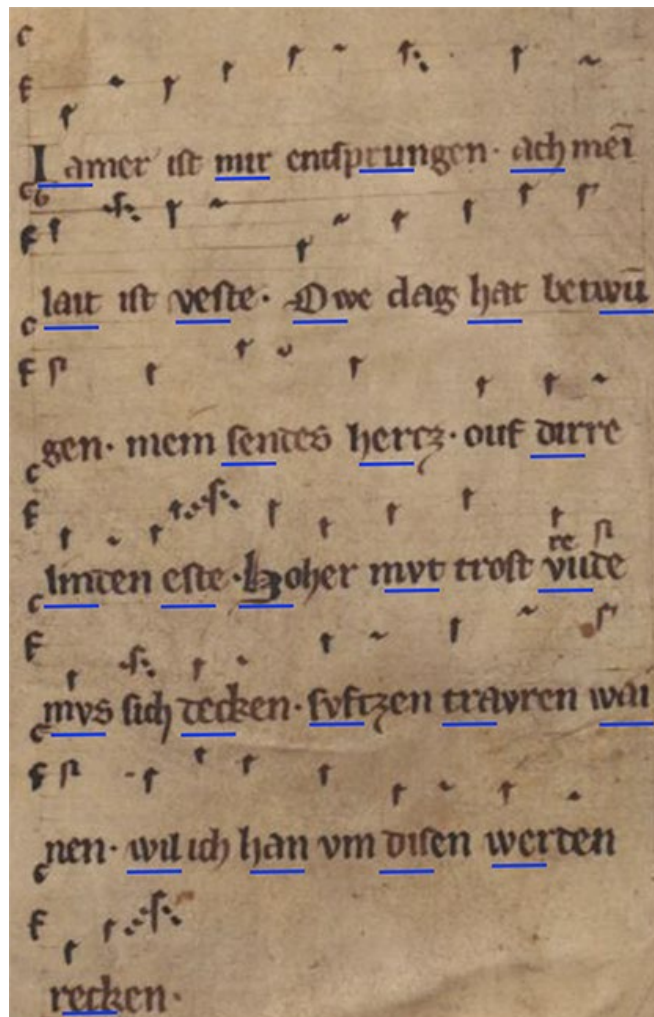 Iamer ist mir entsprungen· ach meī
lait ist veste· Owe dag hat betwū
gen· mein sentes hertz· ouf dirre
linden este· Hoher mvt trost vn̄
re
de
mvs sich decken· svftzen travren wai
nen· wil ich han vm disen werden
recken·